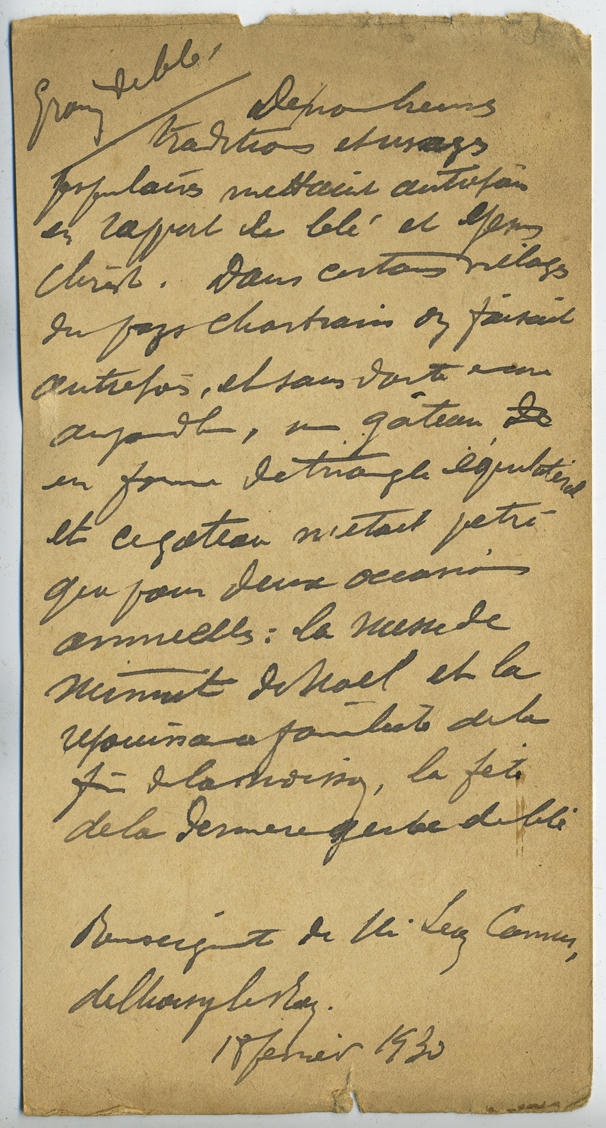 Grain de blé
De nombreuses
traditions et usages
populaires mettaient autrefois
en rapport le blé et Jésus
Christ. Dans certains villages
du pays chartrain on faisait
autrefois, et sans doute encore
aujourdh, un gâteau de
en forme de triangle équilatéral
et ce gateau n'etait petri
que pour deux occasions
annuelles : la messe de
minuit de Noel et la
rejouissance familiale de la
fin de la moisson, la fete
de la derniere gerbe de blé
Renseignt de Mr Camus,
de Choisy le Roy.
18 fevrier 1930